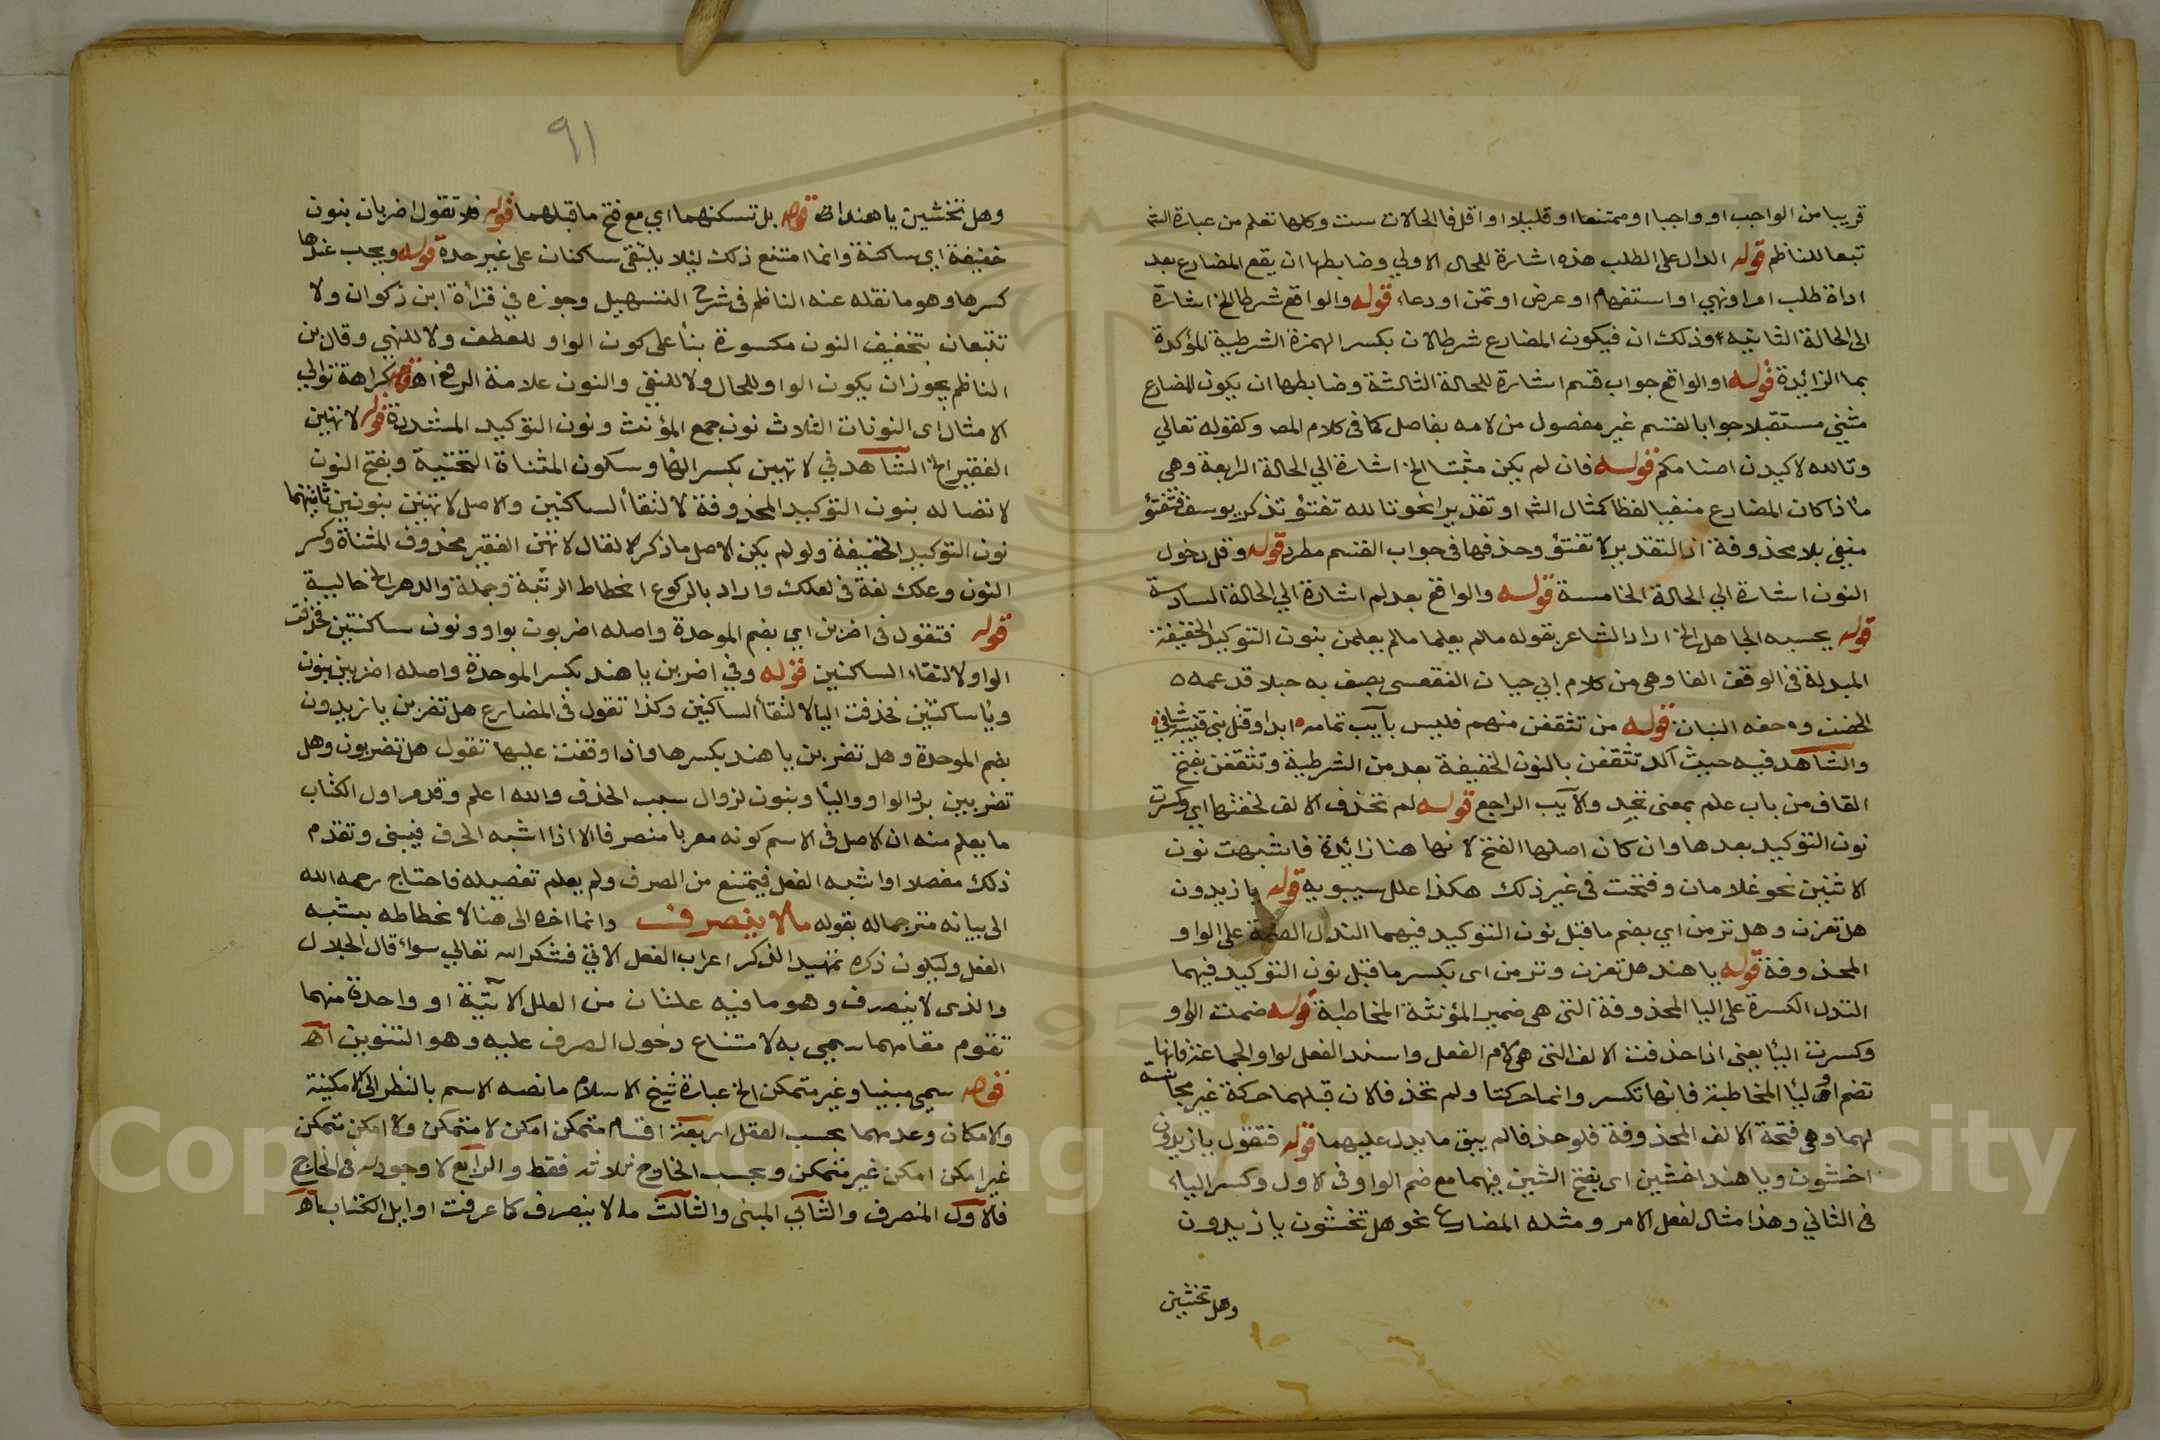 قريبا من الواجب او واجبا او ممتنعا او قليلا او اقل فالحالات ست وكلها تعلم من عبارة الشـ
تبعا للناظم قوله الدال على الطلب هذه اشارة للحال الاولي وضابطها ان يقع المضارع بعد
اداة طلب امر او نهي او استفهام او عرض او تمن او دعاء قوله والواقع شرطا الخ اشارة
الى الحالة الثانية وذلك ان فيكون المضارع شرطا لان بكسر الهمزة الشرطية المؤكدة
بما الزائدة قوله او الواقع جواب قسم اشارة للحالة الثالثة وضابطها ان يكون المضارع
مثبتي مستقبلا جوابا لقسم غير مفصول من لامه بفاصل كما في كلام المص وكقوله تعالي
وتالله لاكيدن اصنامكم قوله فان لم يكن مثبتا الخ اشارة الي الحالة الرابعة وهي
ما اذا كان المضارع منفيا لفظا كمثال الشـ او تقديرا نحو تالله تفتؤ تذكر يوسف فتفتؤ
منفي بلا محذوفة اذ التقدير لا تفتؤ وحذفها في جواب القسم مطرد قوله وقل دخول
النون اشارة الي الحالة الخامسة قوله والواقع بعد لم اشارة الي الحالة السادسة
قوله يحسبه الجاهل الخ اراد الشاعر بقوله ما لم يعلما ما لم يعلمن بنون التوكيد الخفيفة
المبدلة في الوقف الفا وهي من كلام ابي حيان الفقعسي يصف به جبلا قد عمه ه
الخصب وحفه النبات قوله من تثقفن منهم فليس بآيب تمامه ه ابدا وقتل بني قتيبة شافي ه
والشاهد فيه حيث اكد تثقفن بالنون الخفيفة بعد من الشرطية وتثقفن بفتح
القاف من باب علم بمعنى تجد والآيب الراجع قوله لم تحذف الالف لخفتها اي وكسرت
نون التوكيد بعدها وان كان اصلها الفتح لانها هنا زائدة فاشبهت نون
الاثنين نحو غلامان وفتحت في غير ذلك هكذا علل سيبويه قوله يا زيدون
هل تغزن وهل ترمن اي بضم ما قبل نون التوكيد فيهما لتدل الضمة على الواو
المحذوفة قوله يا هند هل تغزن وترمن اي بكسر ما قبل نون التوكيد فيهما
لتدل الكسرة على اليا المحذوفة التي هي ضمير المؤنثة المخاطبة قوله ضمت الواو
وكسرت اليأ يعني اذا حذفت الالف التي هي لام الفعل واسند الفعل لواو الجماعة فانها
تضم او ليأ المخاطبة فانها تكسر وانما حركتا ولم تحذفا لان قبلهما حركة غير مجانسة
لهما وهي فتحة الالف المحذوفة فلو حذفا لم يبق ما يدل عليهما قوله فتقول يا زيدون
اخشون ويا هند اخشين اي بفتح الشين فيهما مع ضم الواو في الاول وكسر الياء
في الثاني وهذا مثال لفعل الامر ومثله المضارع نحو هل تخشون يا زيدون
وهل تخشين
٩١
وهل تخشين يا هند قوله بل تسكنهما اي مع فتح ما قبلهما قوله فلا تقول اضربان بنون
خفيفة اي ساكنة وانما امتنع ذلك ليلا يلتقي ساكنان على غير حدة قوله ويجب عندها
كسرها وهو ما نقله عنه الناظم في شرح التسهيل وجوزه في قراءة ابن ذكوان ولا
تتبعان بتخفيف النون مكسورة بنأ على كون الواو للعطف ولا للنهي وقال بن
الناظم يجوز ان يكون الواو للحال ولا للنفي والنون علامة الرفع اهـ قوله كراهة توالي
الامثال اي النونات الثلاث نون جمع المؤنث ونون التوكيد المشددة قوله لا تهين
الفقير الخ الشاهد في لا تهين بكسر الها وسكون المثناة التحتية وبفتح النون
لاتصاله بنون التوكيد المحذوفة لالتقأ الساكنين والاصل لا تهينن بنونين ثانيتهما
نون التوكيد الخفيفة ولو لم يكن الاصل ما ذكر لا لقال لا تهن الفقير بحذوف المثناة وكسر
النون وعلك لغة في لعلك واراد بالركوع انحطاط الرتبة وجملة والدهر الخ حالية
قوله فتقول في اضربن اي بضم الموحدة واصله اضربون بواو ونون ساكنتين فحذفت
الواو لالتقاء الساكنين قوله وفي اضربن يا هند بكسر الموحدة واصله اضربين بنون
ويأ ساكنتين فحذفت اليا لالتقأ الساكنين وكذا تقول في المضارع هل تضربن يا زيدون
بضم الموحدة وهل تضربن يا هند بكسرها واذا وقفت عليها تقول هل تضربون وهل
تضربين برد الواو واليأ وبنون لزوال سبب الحذف والله اعلم وقدم اول الكتاب
ما يعلم منه ان الاصل في الاسم كونه معربا منصرفا الا اذا اشبه الحرف فيبني وتقدم
ذلك مفصلا او اشبه الفعل فيمتنع من الصرف ولم يعلم تفصيله فاحتاج رحمه الله
الى بيانه مترجما له بقوله مالا ينصرف وانما اخره الى هنا لانحطاطه بشبه
الفعل وليكون ذكره تمهيدا لذكر اعراب الفعل الاتي فشكر الله تعالي سواء قال الجلال
والذي لا ينصرف وهو ما فيه علتان من العلل الآتية او واحدة منهما
تقوم مقامهما سمي به لامتناع دخول الصرف عليه وهو التنوين اهـ
قوله سمي مبنيا وغير متمكن الخ عبارة شيخ الاسلام ما نصه الاسم بالنظر الى الامكنية
والامكان وعدمهما بحسب العقل اربعة اقسام متمكن امكن لا متمكن ولا امكن متمكن
غير امكن امكن غير متمكن وبحسب الخارج ثلاثة فقط والرابع لا وجود له في الخارج
فالاول المنصرف والثاني المبني والثالث ما لا ينصرف كما عرفت اوايل الكتاب اهـ